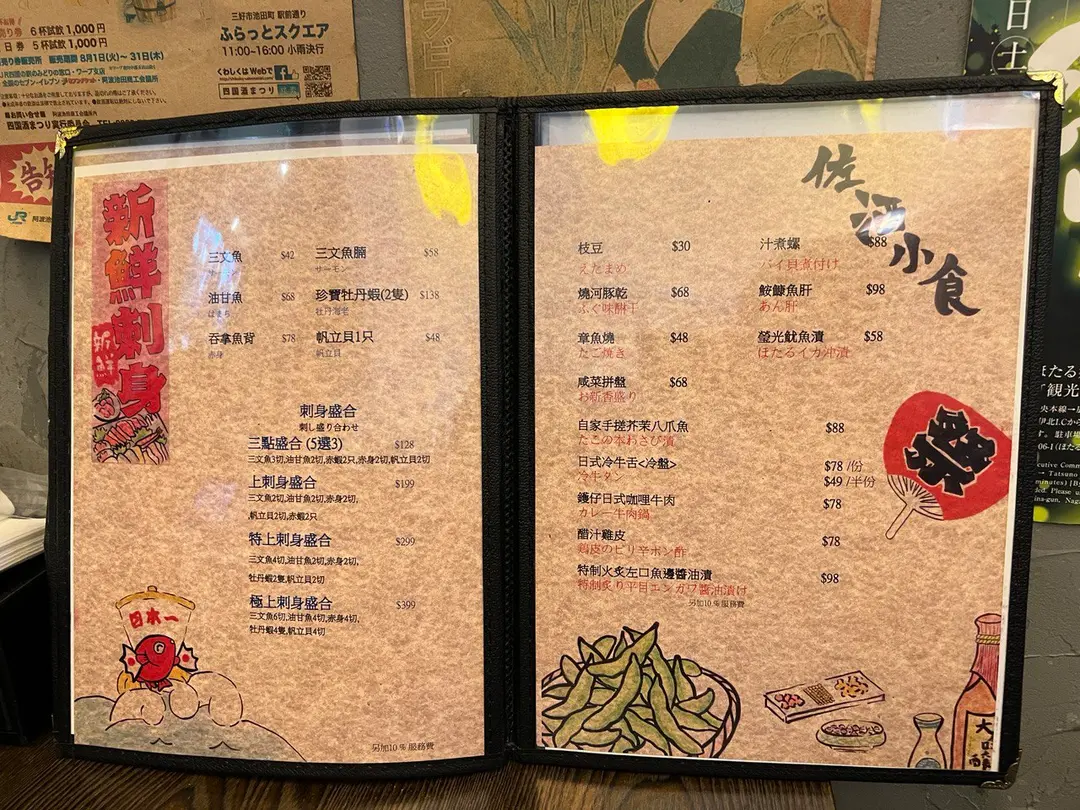 6杯試飲 1,000円
日券 5杯試飲 1,000円
販売期間 8月1日(火)～31日(木)
JR四国の駅のみどりの窓口・ワープ支店
三好市池田町 駅前通り
ふらっとスクエア
11:00~16:00 小雨決行
くわしくはWebで
四国酒まつり
JR 阿波池田
新鮮刺身
新鮮
三文魚 $42
三文魚腩 $58
サーモン
油甘魚 $68
はまち
珍寶牡丹蝦(2隻) $138
牡丹海老
吞拿魚背 $78
赤身
帆立貝1只 $48
帆立貝
刺身盛合
刺し盛り合わせ
三點盛合 (5選3) $128
三文魚3切,油甘魚2切,赤蝦2只,赤身2切,帆立貝2切
上刺身盛合 $199
三文魚2切,油甘魚2切,赤身2切,
,帆立貝2切,赤蝦2只
特上刺身盛合 $299
三文魚4切,油甘魚2切,赤身2切,
牡丹蝦2隻,帆立貝2切
極上刺身盛合 $399
三文魚6切,油甘魚4切,赤身4切,
牡丹蝦4隻,帆立貝4切
日本一
另加10%服務費
佐酒小食
枝豆 $30
えだまめ
汁煮螺 $88
バイ貝煮付け
燒河豚乾 $68
ふぐ味醂干
鮟鱇魚肝 $98
あん肝
章魚燒 $48
たこ焼き
瑩光魷魚漬 $58
ほたるイカ沖漬
咸菜拼盤 $68
お新香盛り
自家手搓芥茉八爪魚 $88
たこの本わさび漬
日式冷牛舌<冷盤> $78 /份
冷牛タン $49 /半份
鑊仔日式咖哩牛肉 $78
カレー牛肉鍋
醋汁雞皮 $78
鶏皮のピリ辛ポン酢
特制火炙左口魚邊醬油漬 $98
特制炙り平目エンガワ醤油漬け
另加10%服務費
祭
大